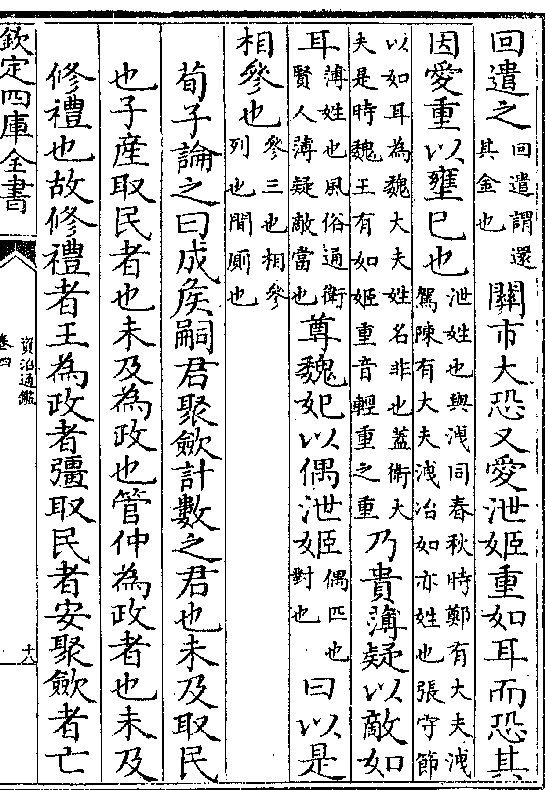 回遣之回遣謂還其金也關市大恐又愛泄姬重如耳而恐其
因愛重以壅已也泄姓也與洩同春秋時鄭有大夫洩駕陳有大夫洩冶如亦姓也張守節
以如耳為魏大夫姓名非也蓋衛大夫是時魏王有如姬重音輕重之重乃貴薄疑以敵如
耳薄姓也風俗通衛賢人薄疑敵當也尊魏妃以偶泄姬偶匹也對也曰以是
相參也參三也相參列也間厠也
荀子論之曰成侯嗣君聚歛計數之君也未及取民
也子產取民者也未及為政也管仲為政者也未及
修禮也故修禮者王為政者彊取民者安聚歛者亡
欽定四庫全書
資治通鑑
卷四
十八